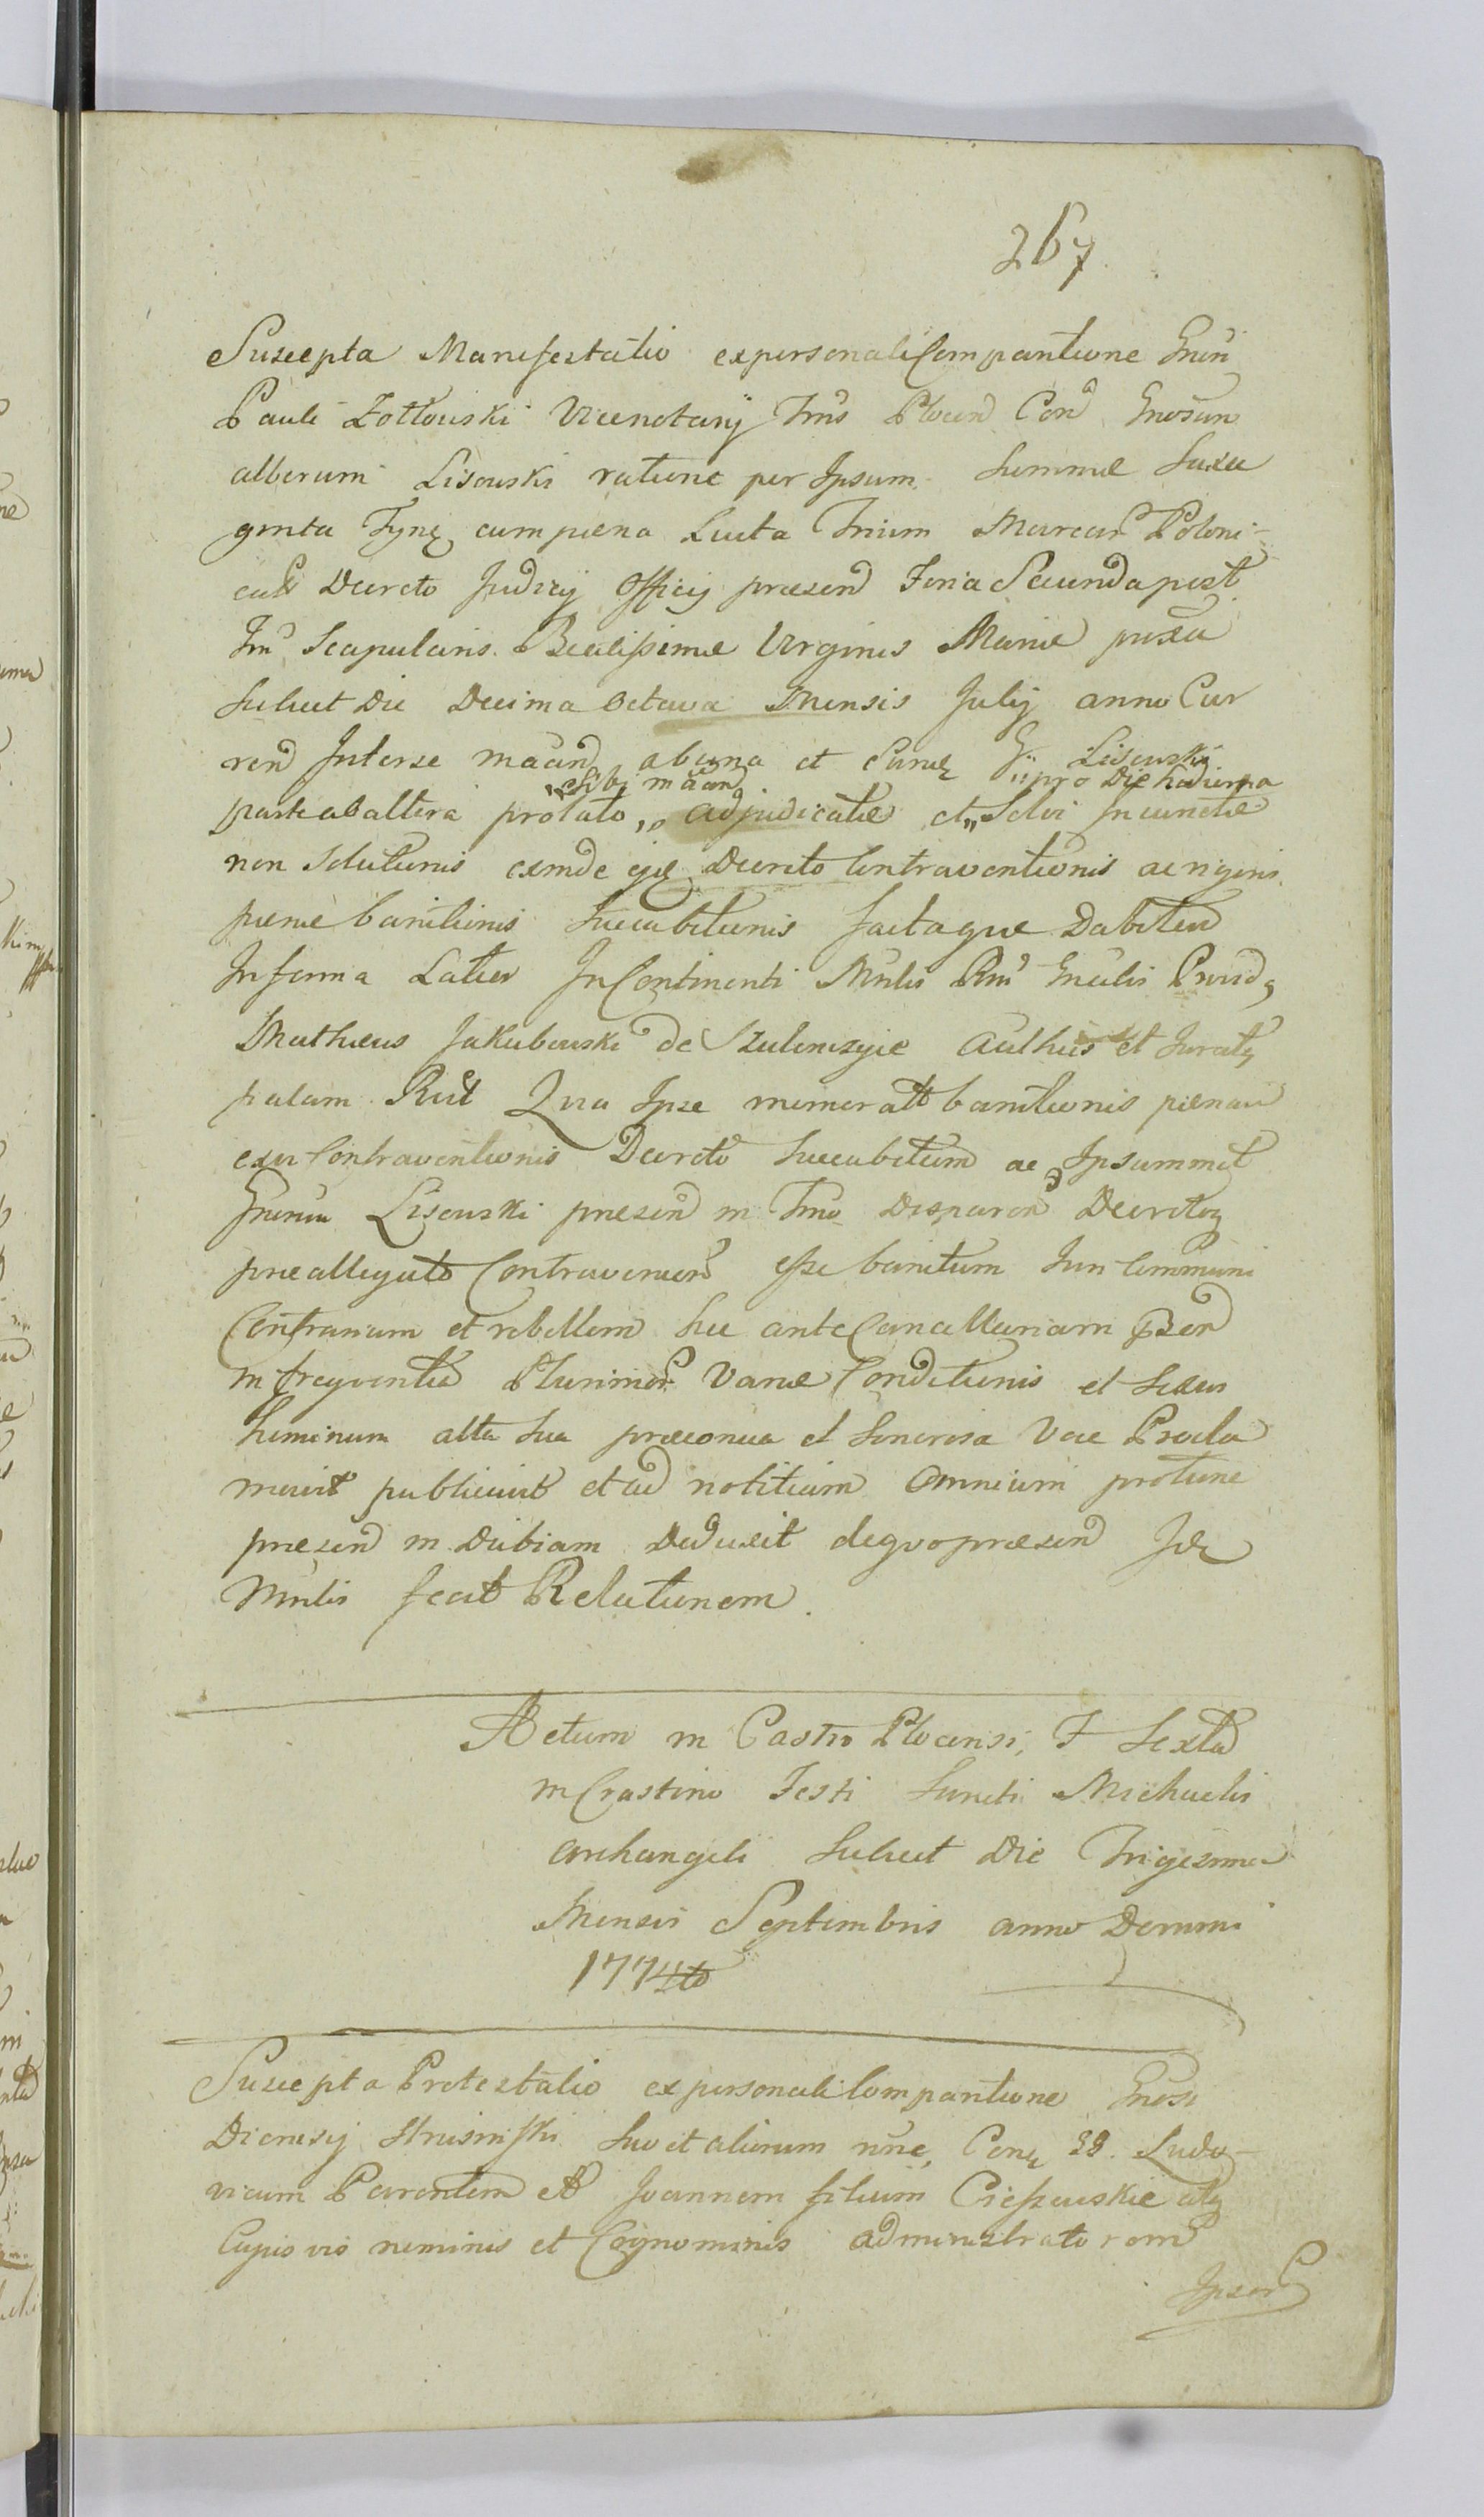 267
Suscepta Manifestatio ex personali Comparitione Gnĩ
Pauli Zołtowski Vicenotarij Tnus Plocen Con Gnosum
alberum Lisowski ratione per Ipsum Summae Sexa
ginta Tynf. cum paena Lucta Trium Marcar Poloni-
cal Decreto Judicij Officij praesen Feria Secunda post
Fm Scapularis Beatissimae Virginis Mariae proxa
Scilicet Die Decima Octava Mensis Julij anno Cur
ren Inter se maan ab una et Eund G. Lisowski
"Sibi maan "pro Die hodierna
parte ab altera prolato " adjudicatae et " Solvi Injunctae
non Solutionis exinde ejq Decreto Contraventionis ac rigoris
paenae banitionis Succubitionis factaque Dabiten
In forma Lator In Continenti Mnlis Rni Gnalis Provid
Mathaeus Jakubowski de Szulmierzyce Authus et Juratq
palam Rcit Qua Ipse memoratt banitionis paenam
ex Contraventionis Decreto Succubitam ac Ipsummet
Gnĩm Lisowski praesen in Tmo Disparen Decretoq
praeallegato Contravenien esse banitum Juri Communi
Contrarium et rebellem hic ante Cancellariam Pzen
in freqventia Plurimor Variae Conditionis et Sexus
hominum alta Sua praeconica et Sonorosa Voce Procla
mavit publicavit et ad notitiam Omnium pro tunc
praesen in Dubiam Deduxit de quo praesen Id
Mnlis fecit Relationem.
Actum in Castro Plocensi, F Sexta
in Crastino Festi Sancti Michaelis
archangeli Scilicet Die Trigesima
Mensis Septembris anno Domini
1774to
Suscepta Protestatio ex personali Comparitione Gnosi
Dionisij Strusinski Suo et aliorum nne, Conq GG. Ludo-
vicum Parentem et Joannem filium Cieszewskie atq
Cujus vis nominis et Cognominis administratorem
Ipsor